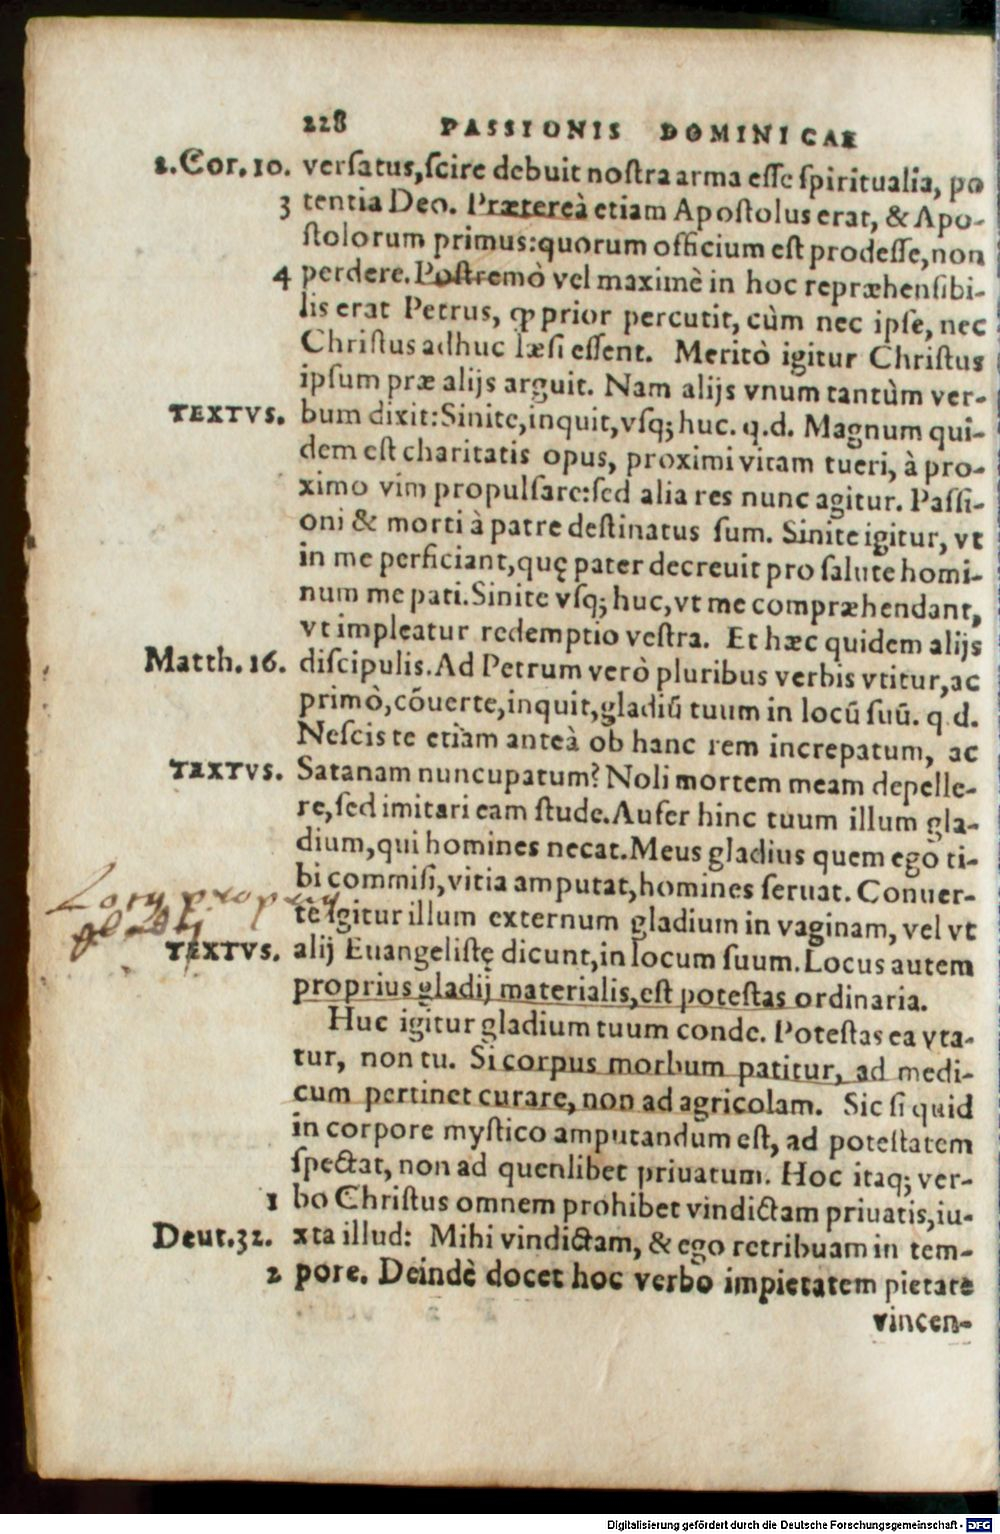 228 PASSIONIS DOMINICAE
2.Cor.10. verſatus,ſcire debuit noſtra arma eſſe ſpiritualia, po
3 tentia Deo. Prætereà etiam Apoſtolus erat, & Apo-
ſtolorum primus:quorum officium eſt prodeſſe,non
4 perdere.Poſtremò vel maximè in hoc repræhenſibi-
lis erat Petrus, ꝙ prior percutit, cùm nec ipſe, nec
Chriſtus adhuc læſi eſſent. Meritò igitur Chriſtus
ipſum præ alijs arguit. Nam alijs vnum tantùm ver-
TEXTVS. bum dixit:Sinite,inquit,vſq; huc. q.d. Magnum qui-
dem eſt charitatis opus, proximi vitam tueri, à pro-
ximo vim propulſare:ſed alia res nunc agitur. Paſſi-
oni & morti à patre deſtinatus ſum. Sinite igitur, vt
in me perficiant,quę pater decreuit pro ſalute homi-
num me pati.Sinite vſq; huc,vt me compræhendant,
vt impleatur redemptio veſtra. Et hæc quidem alijs
Matth.16. diſcipulis.Ad Petrum verò pluribus verbis vtitur,ac
primò,cōuerte,inquit,gladiū tuum in locū ſuū. q.d.
Neſcis te etiam anteà ob hanc rem increpatum, ac
TEXTVS. Satanam nuncupatum? Noli mortem meam depelle-
re,ſed imitari eam ſtude.Aufer hinc tuum illum gla-
dium,qui homines necat.Meus gladius quem ego ti-
bi commiſi,vitia amputat,homines ſeruat. Conuer-
te igitur illum externum gladium in vaginam, vel vt
TEXTVS. alij Euangeliſtę dicunt,in locum ſuum.Locus autem
proprius gladij materialis,eſt poteſtas ordinaria.
Huc igitur gladium tuum conde. Poteſtas ea vta-
tur, non tu. Si corpus morbum patitur, ad medi-
cum pertinet curare, non ad agricolam. Sic ſi quid
in corpore myſtico amputandum eſt, ad poteſtatem
ſpectat, non ad quenlibet priuatum. Hoc itaq; ver-
1 bo Chriſtus omnem prohibet vindictam priuatis,iu-
Deut.32. xta illud: Mihi vindictam, & ego retribuam in tem-
2 pore. Deindè docet hoc verbo impietatem pietate
vincen-
gladij
Digitalisierung gefördert durch die Deutsche Forschungsgemeinschaft - DFG